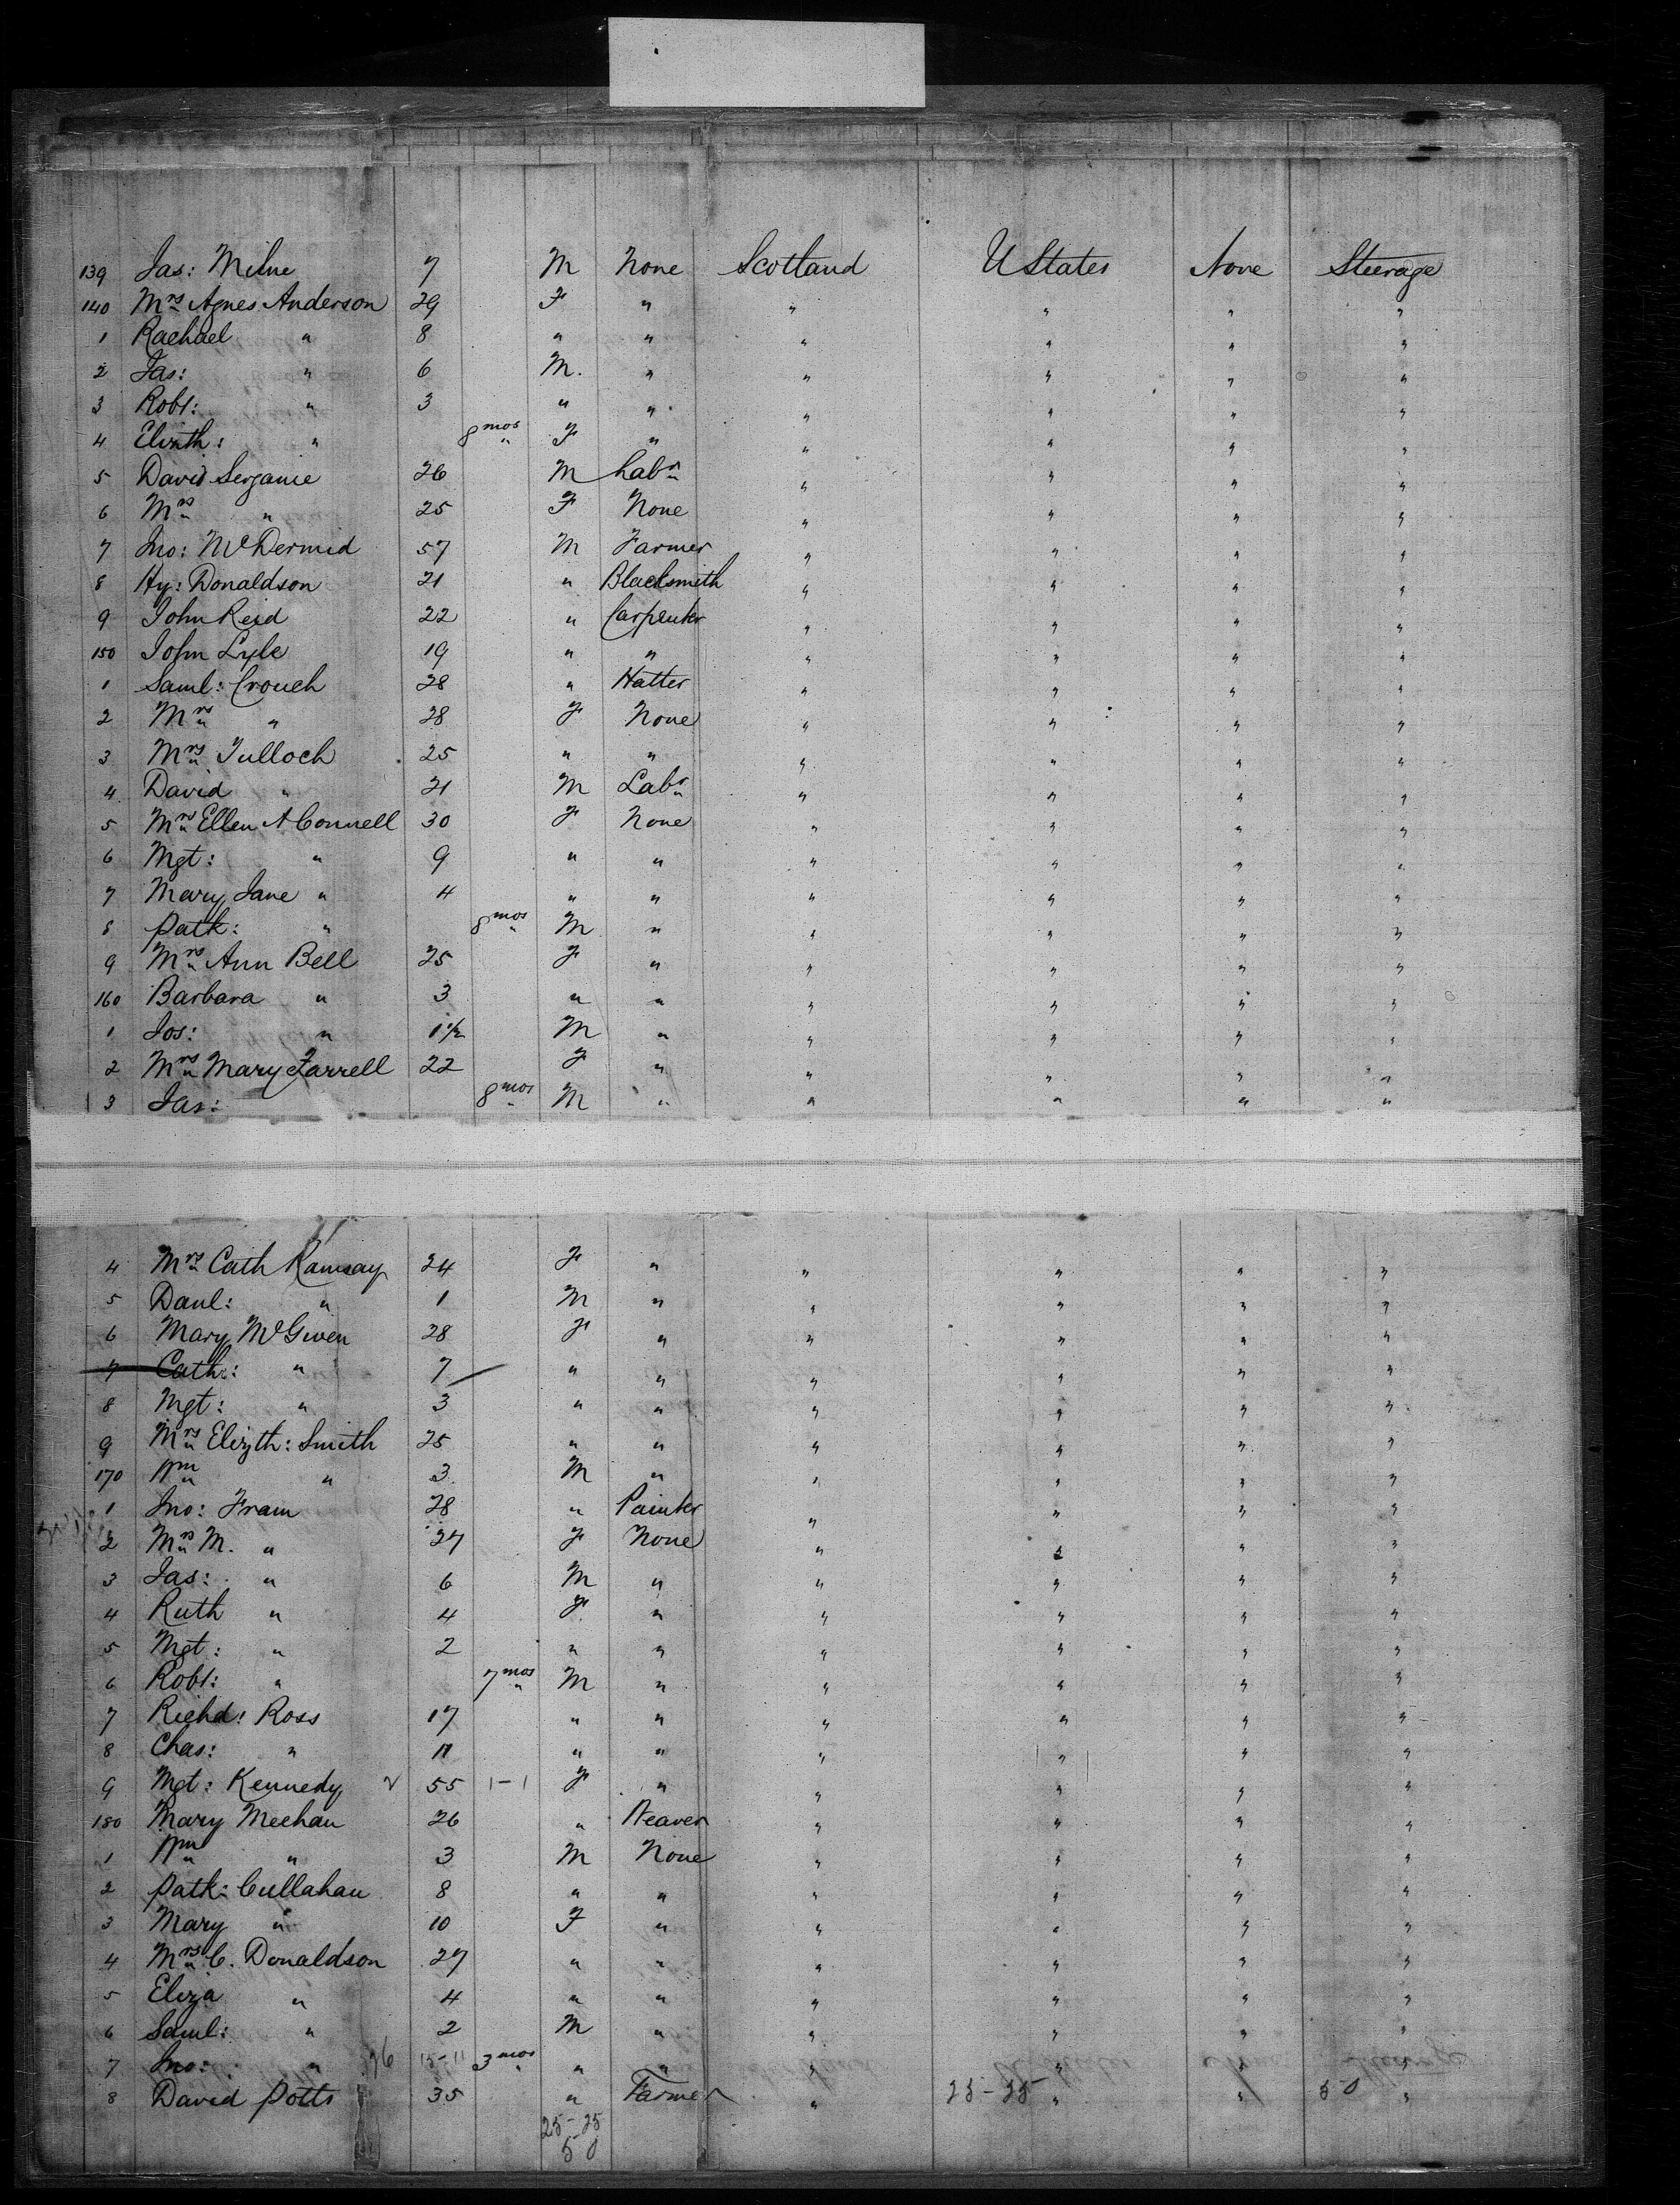 139 Jas: Milne 7 M None Scotland U States None Steerage
140 Mrs Agnes Anderson 29 F " " " " "
1 Rachael " 8 " " " " " "
2 Jas: " 6 M. " " " " "
3 Robt: " 3 " " " " " "
4 Elizth: " 8 mos F " " " " "
5 David 26 M Labr " " " "
6 Mrs " 25 F None " " " "
7 Jno: McDermid 57 M Farmer " " " "
8 Hy: Donaldson 21 " Blacksmith " " " "
9 John Reid 22 " Carpenter " " " "
150 John Lyle 19 " " " " " "
1 Saml: Crouch 28 " Hatter " " " "
2 Mrs " 28 F None " " " "
3 Mrs Tulloch 25 " " " " " "
4 David " 21 M Labr " " " "
5 Mrs Ellen A Connell 30 F None " " " "
6 Mgt: " 9 " " " " " "
7 Mary Jane " 4 " " " " " "
8 Patk: " 8 mos M " " " " "
9 Mrs Ann Bell 25 F " " " " "
160 Barbara " 3 " " " " " "
1 Jos: " 1 1/2 M " " " " "
2 Mrs Mary Farrell 22 F " " " " "
3 Jas: 8 mos M " " " " "
4 Mrs Cath Ramsay 24 F " " " " "
5 Danl: " 1 M " " " " "
6 Mary McGiven 28 F " " " " "
7 Cath: " 7 " " " " " "
8 Mgt: " 3 " " " " " "
9 Mrs Elizth: Smith 25 " " " " " "
170 Wm " 3 M " " " " "
1 Jno: Fram 28 " Painter " " " "
2 Mrs M. " 27 F None " " " "
3 Jas: " 6 M " " " " "
4 Ruth " 4 F " " " " "
5 Mgt: " 2 " " " " " "
6 Robt: " 7 mos M " " " " "
7 Richd: Ross 17 " " " " " "
8 Chas: " 11 " " " " " "
9 Mgt: Kennedy 55 1-1 F " " " " "
180 Mary Meehan 26 " Weaver " " " "
1 Wm " 3 M None " " " "
2 Patk: Cullahan 8 " " " " " "
3 Mary " 10 F " " " " "
4 Mrs C. Donaldson 27 " " " " " "
5 Eliza " 4 " " " " " "
6 Saml: " 2 M " " " " "
7 Jno: " 3 mos " " " "
8 David Potts 35 " Farmer " 25-25 " " 50 "
25-25
50